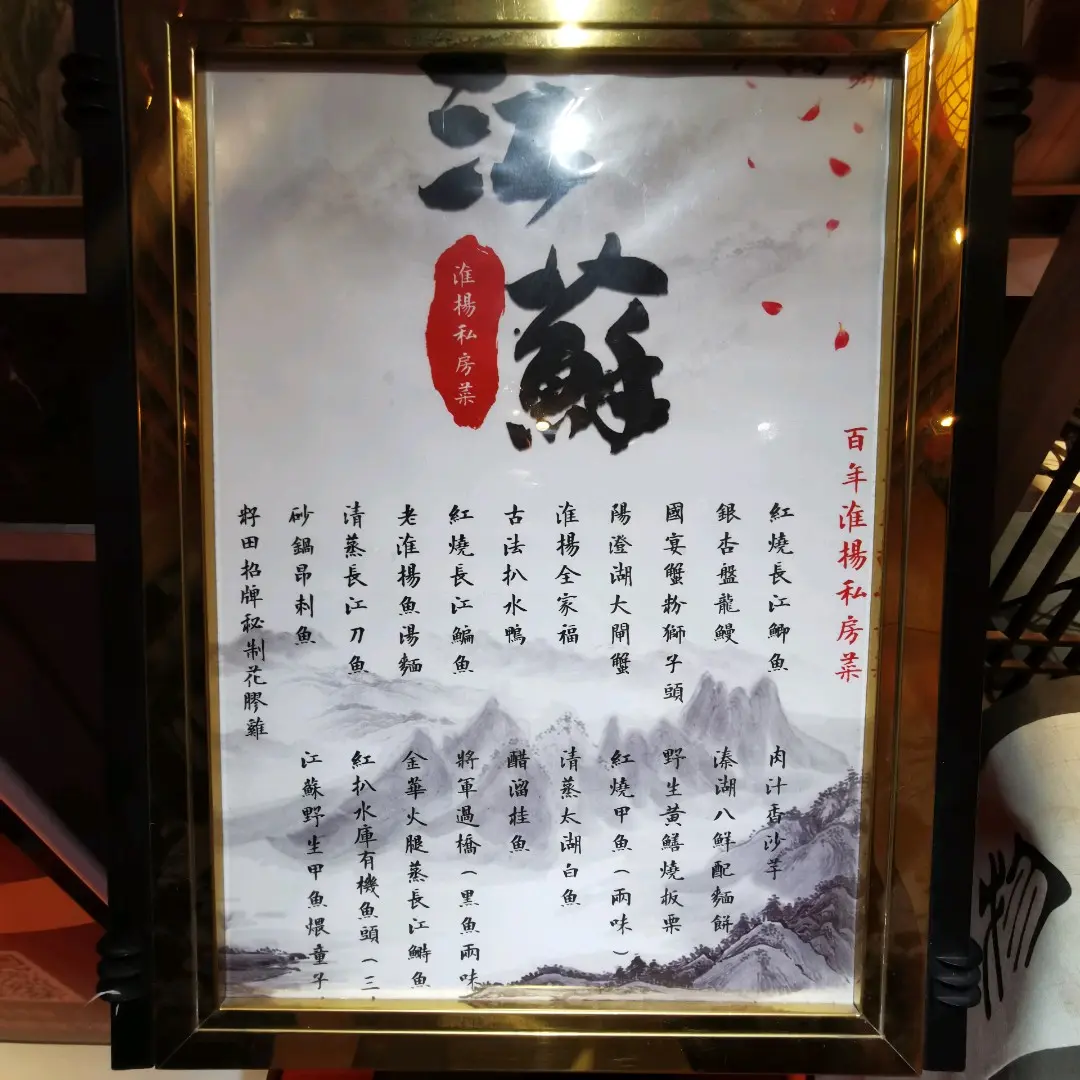 江蘇
淮揚私房菜
百年淮揚私房菜
紅燒長江鯽魚
銀杏盤龍鰻
國宴蟹粉獅子頭
陽澄湖大閘蟹
淮揚全家福
古法扒水鴨
紅燒長江鳊魚
老淮揚魚湯麵
清蒸長江刀魚
砂鍋昂刺魚
籽田招牌秘制花膠雞
肉汁香沙芋
溱湖八鮮配麵餅
野生黃鱔燒板栗
紅燒甲魚(兩味)
清蒸太湖白魚
醋溜桂魚
將軍過橋(黑魚兩味
金華火腿蒸長江鰣魚
紅扒水庫有機魚頭(三
江蘇野生甲魚煨童子